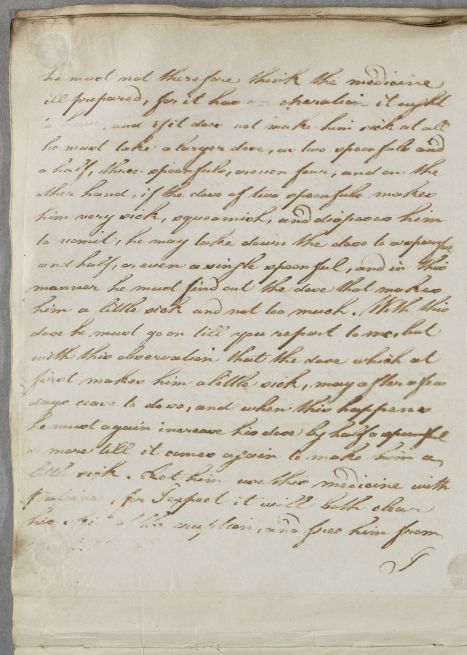 he must not therefore think the medicine
ill prepared, for it has an operation it ought
to have, and if it does not make him sick at all
he must take a larger dose, as two spoonfuls and
a half, three spoonfuls, or even four, and on the
other hand, if the dose of two spoonfuls makes
him very sick, squeamish, and disposes him
to vomit, he may take down the dose to a spoonful
and half, or even a single spoonful, and in this
manner he must find out the dose that makes
him a little sick and not too much. With this
dose he must go on till you report to me, but
with this observation that the dose which at
first makes him a little sick, may after a few
days cease to do so, and when this happens
he must again increase his dose by half a spoonful
or more till it comes again to make him a
little sick. Let him use this medicine with
patience, for I expect it will both clear
his of the eruption, and free him from